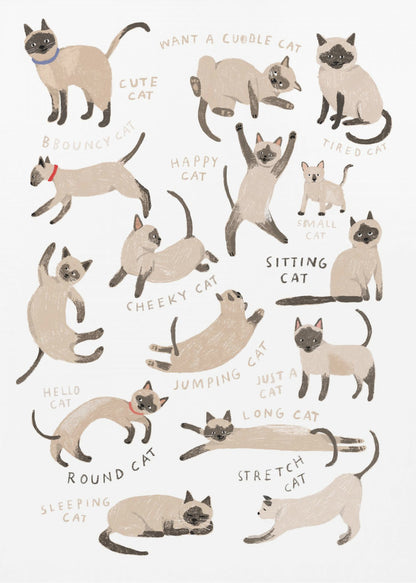 WANT A CUDDLE CAT
CUTE
CAT
BBOUNCY CAT
TIRED CAT
HAPPY
CAT
SMALL
CAT
SITTING
CAT
CHEEKY CAT
JUMPING CAT
JUST A
CAT
HELLO
CAT
LONG CAT
ROUND CAT
STRETCH
CAT
SLEEPING
CAT